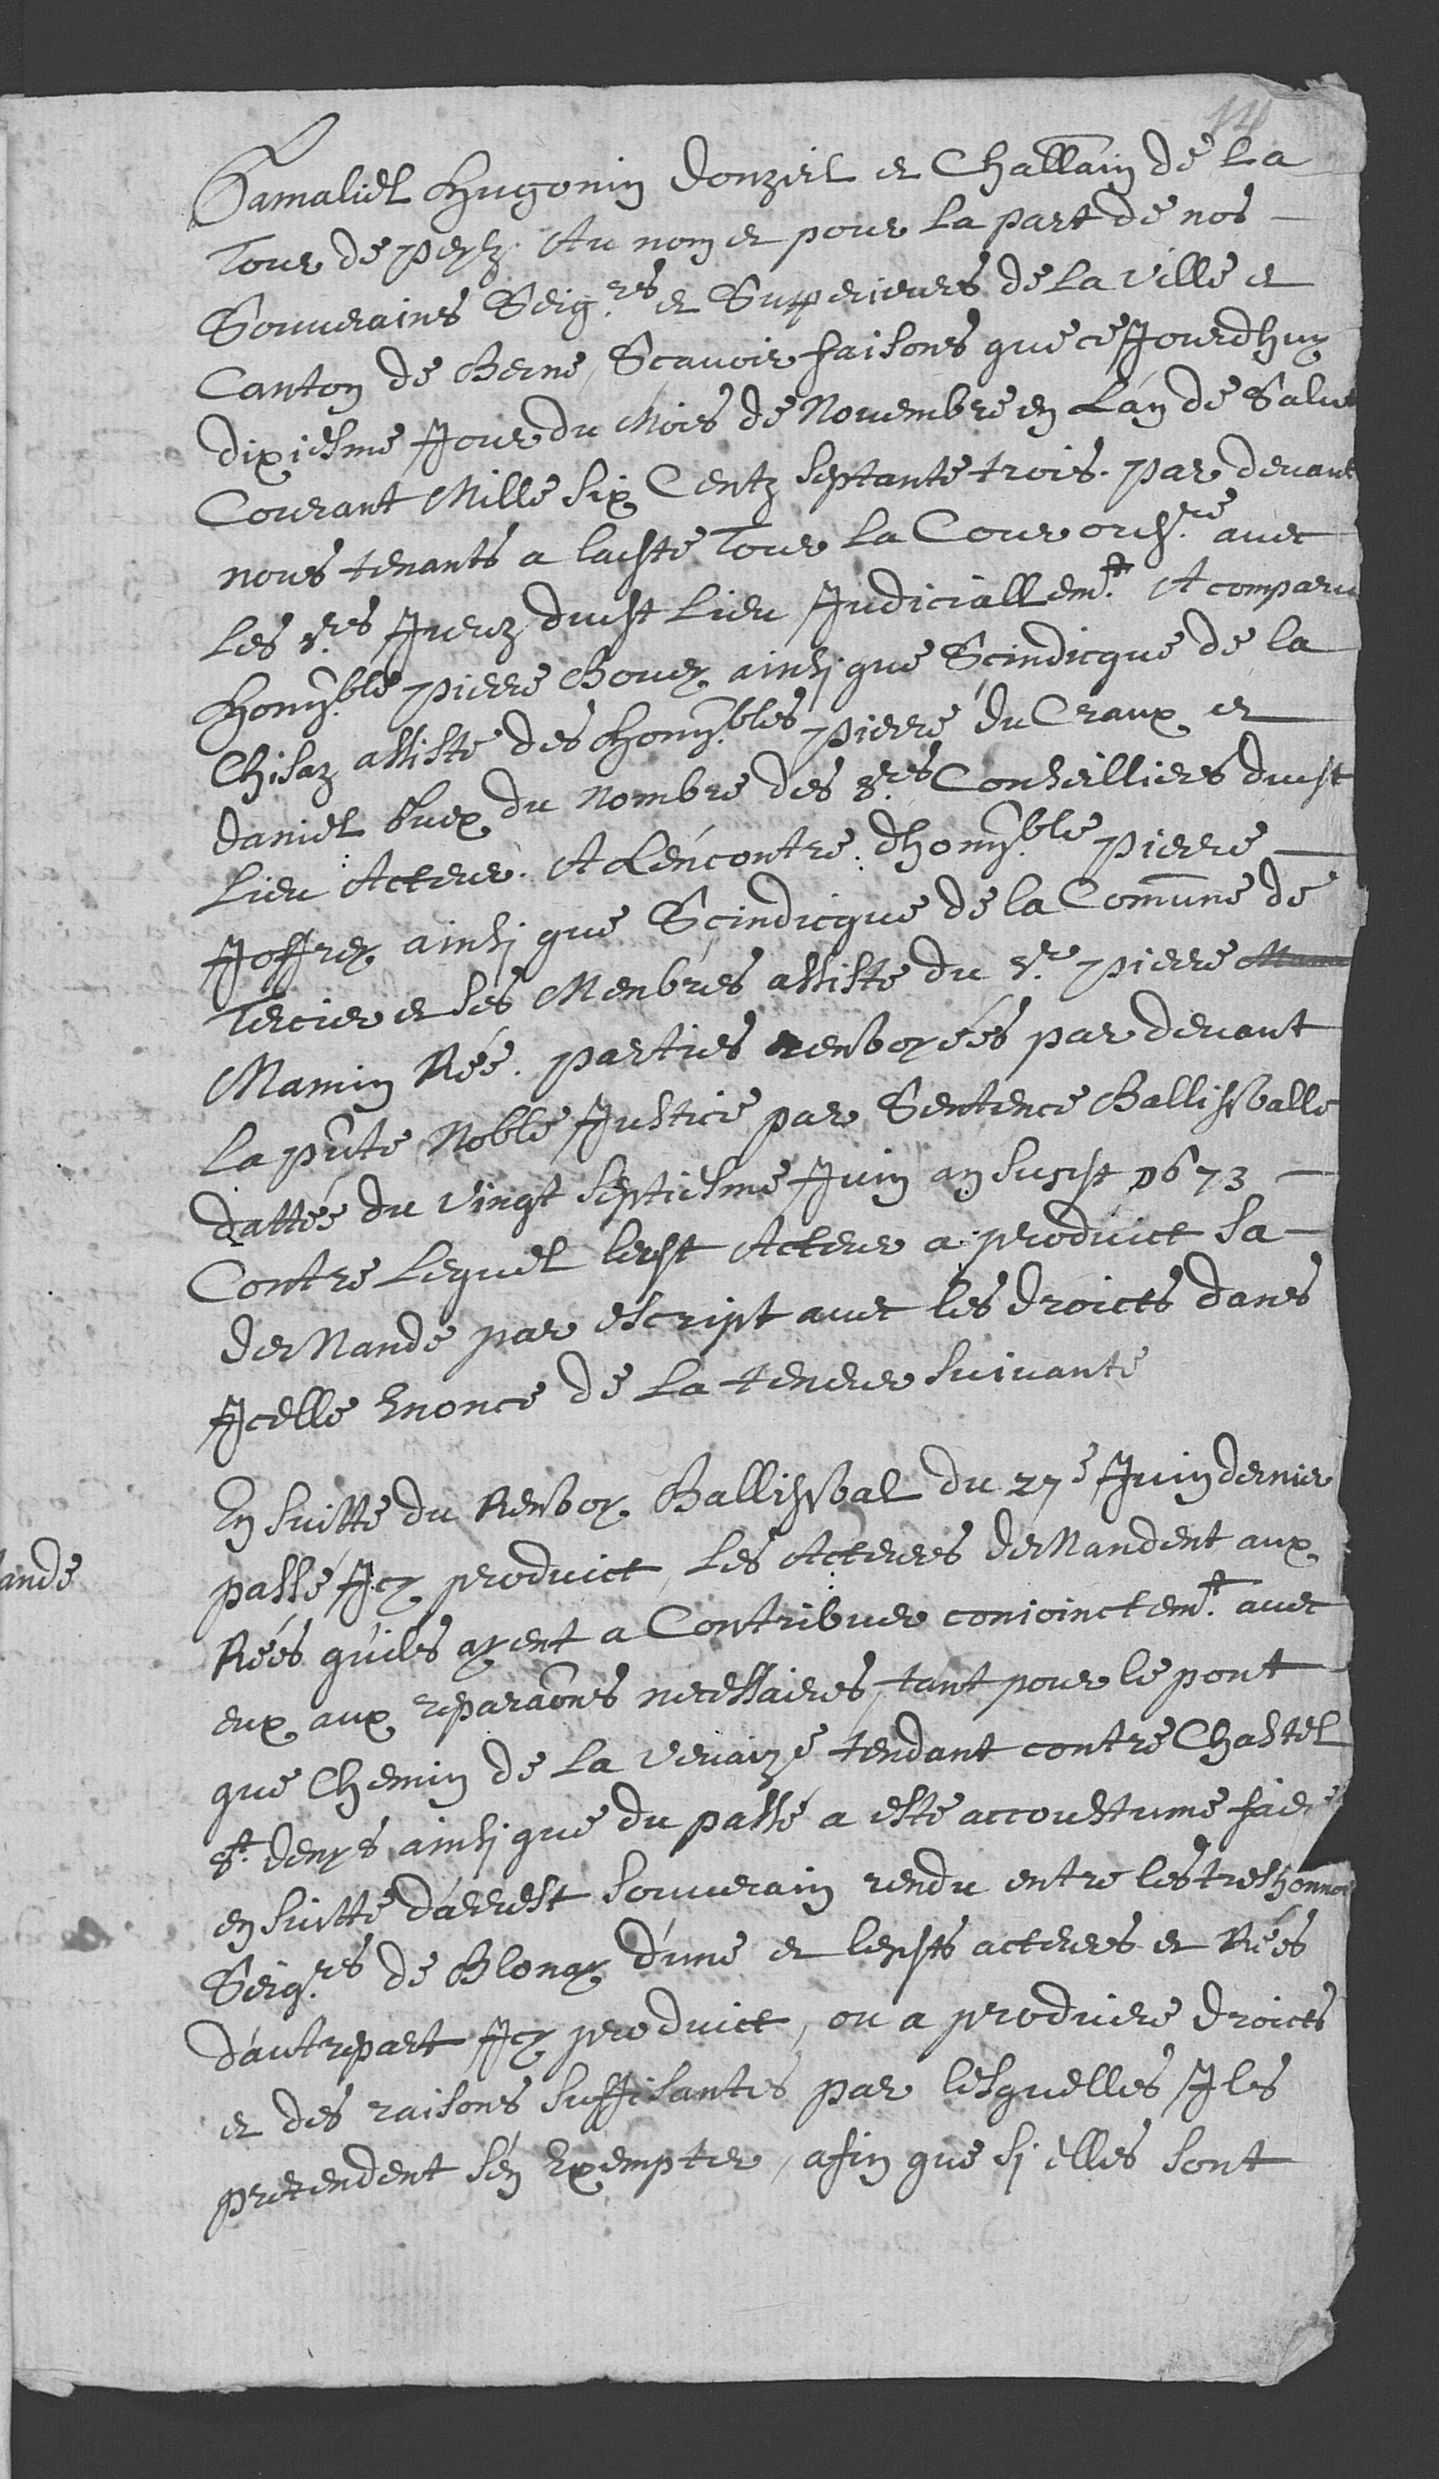 14
Gamaliel Hugonin donzel et Challain de La
Tour de peylz Au nom et pour La part de nos
Souverains Seig.rs et Supperieurs de La ville et
Canton de Berne, Scavoir faisons que ce Jourdhuy
dixiesme Jour du Mois de Novembre en L'an de Salut
Courant Mille six Centz septante trois. par devant
nous tenants a ladste Tour La Cour ord.re avec
Les s.rs Jurez dudst Lieu Judiciallem.t A comparu
honn.ble pierre Bovey ainsj que Scindicque de la
Chisaz assiste des honn.bles pierre du Craux et
daniel Buex du Nombre des s.rs Conseilliers dudst
Lieu Acteur. A L'encontre d'honn.ble pierre
Joffrey ainsj que Scindicque de la Comune de
Tercier et ses Menbres assiste du s.r pierre
Mamin Rée. parties renvoyéés par devant
La pnte Noble Justice par Sentence Ballifvalle
dattéé du vingt septiesme Juin an susdst 1673
Contre Lequel ledst Acteur a produict sa
deMande par escript avec les droicts dans
Jcelle Enonce de La teneur suivante
En suitte du Renvoy Ballifval du 27e Juin dernier
passé Jcy produict, Les Acteurs deMandent aux
Réés qu'ils ayent a Contribuer conioinctem.t avec
eux aux reparaons necessaires, tant pour le pont
que Chemin de La vevaize tendant contre Chastel
s.t denys ainsj que du passé a este accoustume faire
en suitte d'arrest souverain rendu entre les treshonnor
Seig.rs de Blonay d'une et lesdsts acteurs et Réés
d'autrepart Jcy produict, ou a produire droicts
et des raisons suffisantes par lesquelles Jls
pretendent s'en Exempter, afin que sj elles sont
ande